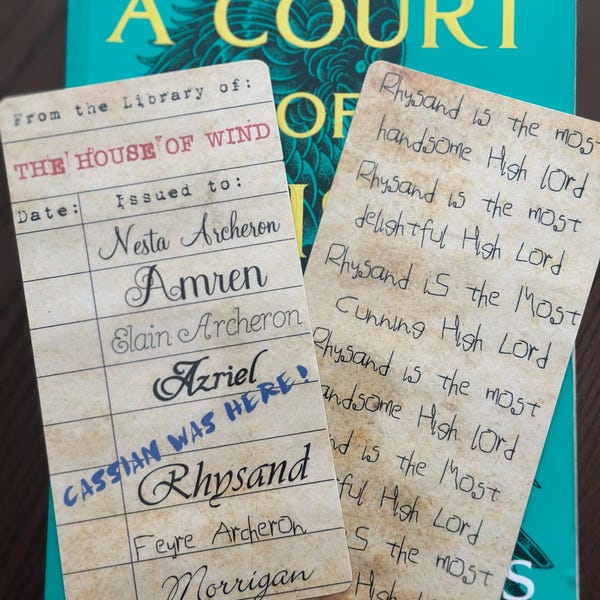 A COURT
OF
From the Library of:
THE HOUSE OF WIND
Date: Issued to:
Nesta Archeron
Amren
Elain Archeron
Azriel
CASSIAN WAS HERE!
Rhysand
Feyre Archeron
Morrigan
Rhysand is the most
handsome High lord
Rhysand is the most
delightful High Lord
Rhysand is the Most
Cunning High Lord
Rhysand is the most
andsome High lord
d is the Most
ful High Lord
S the most
High Lord
S